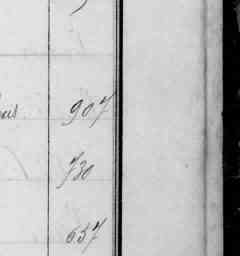 907
730
657